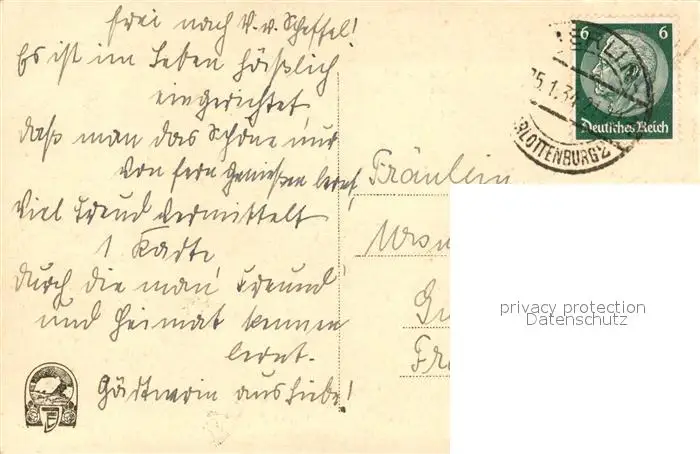 frei nach V. v. Scheffel!
Es ist im Leben häßlich
eingerichtet,
daß man das Schöne nur
von fern genießen lernt,
Viel Freud vermittelt
1 Karte,
durch die man Freund
und Heimat kennen
lernt.
Gärtnerin aus Liebe!
6 6
Deutsches Reich
BERLIN
CHARLOTTENBURG 2
Fräulein
privacy protection
Datenschutz